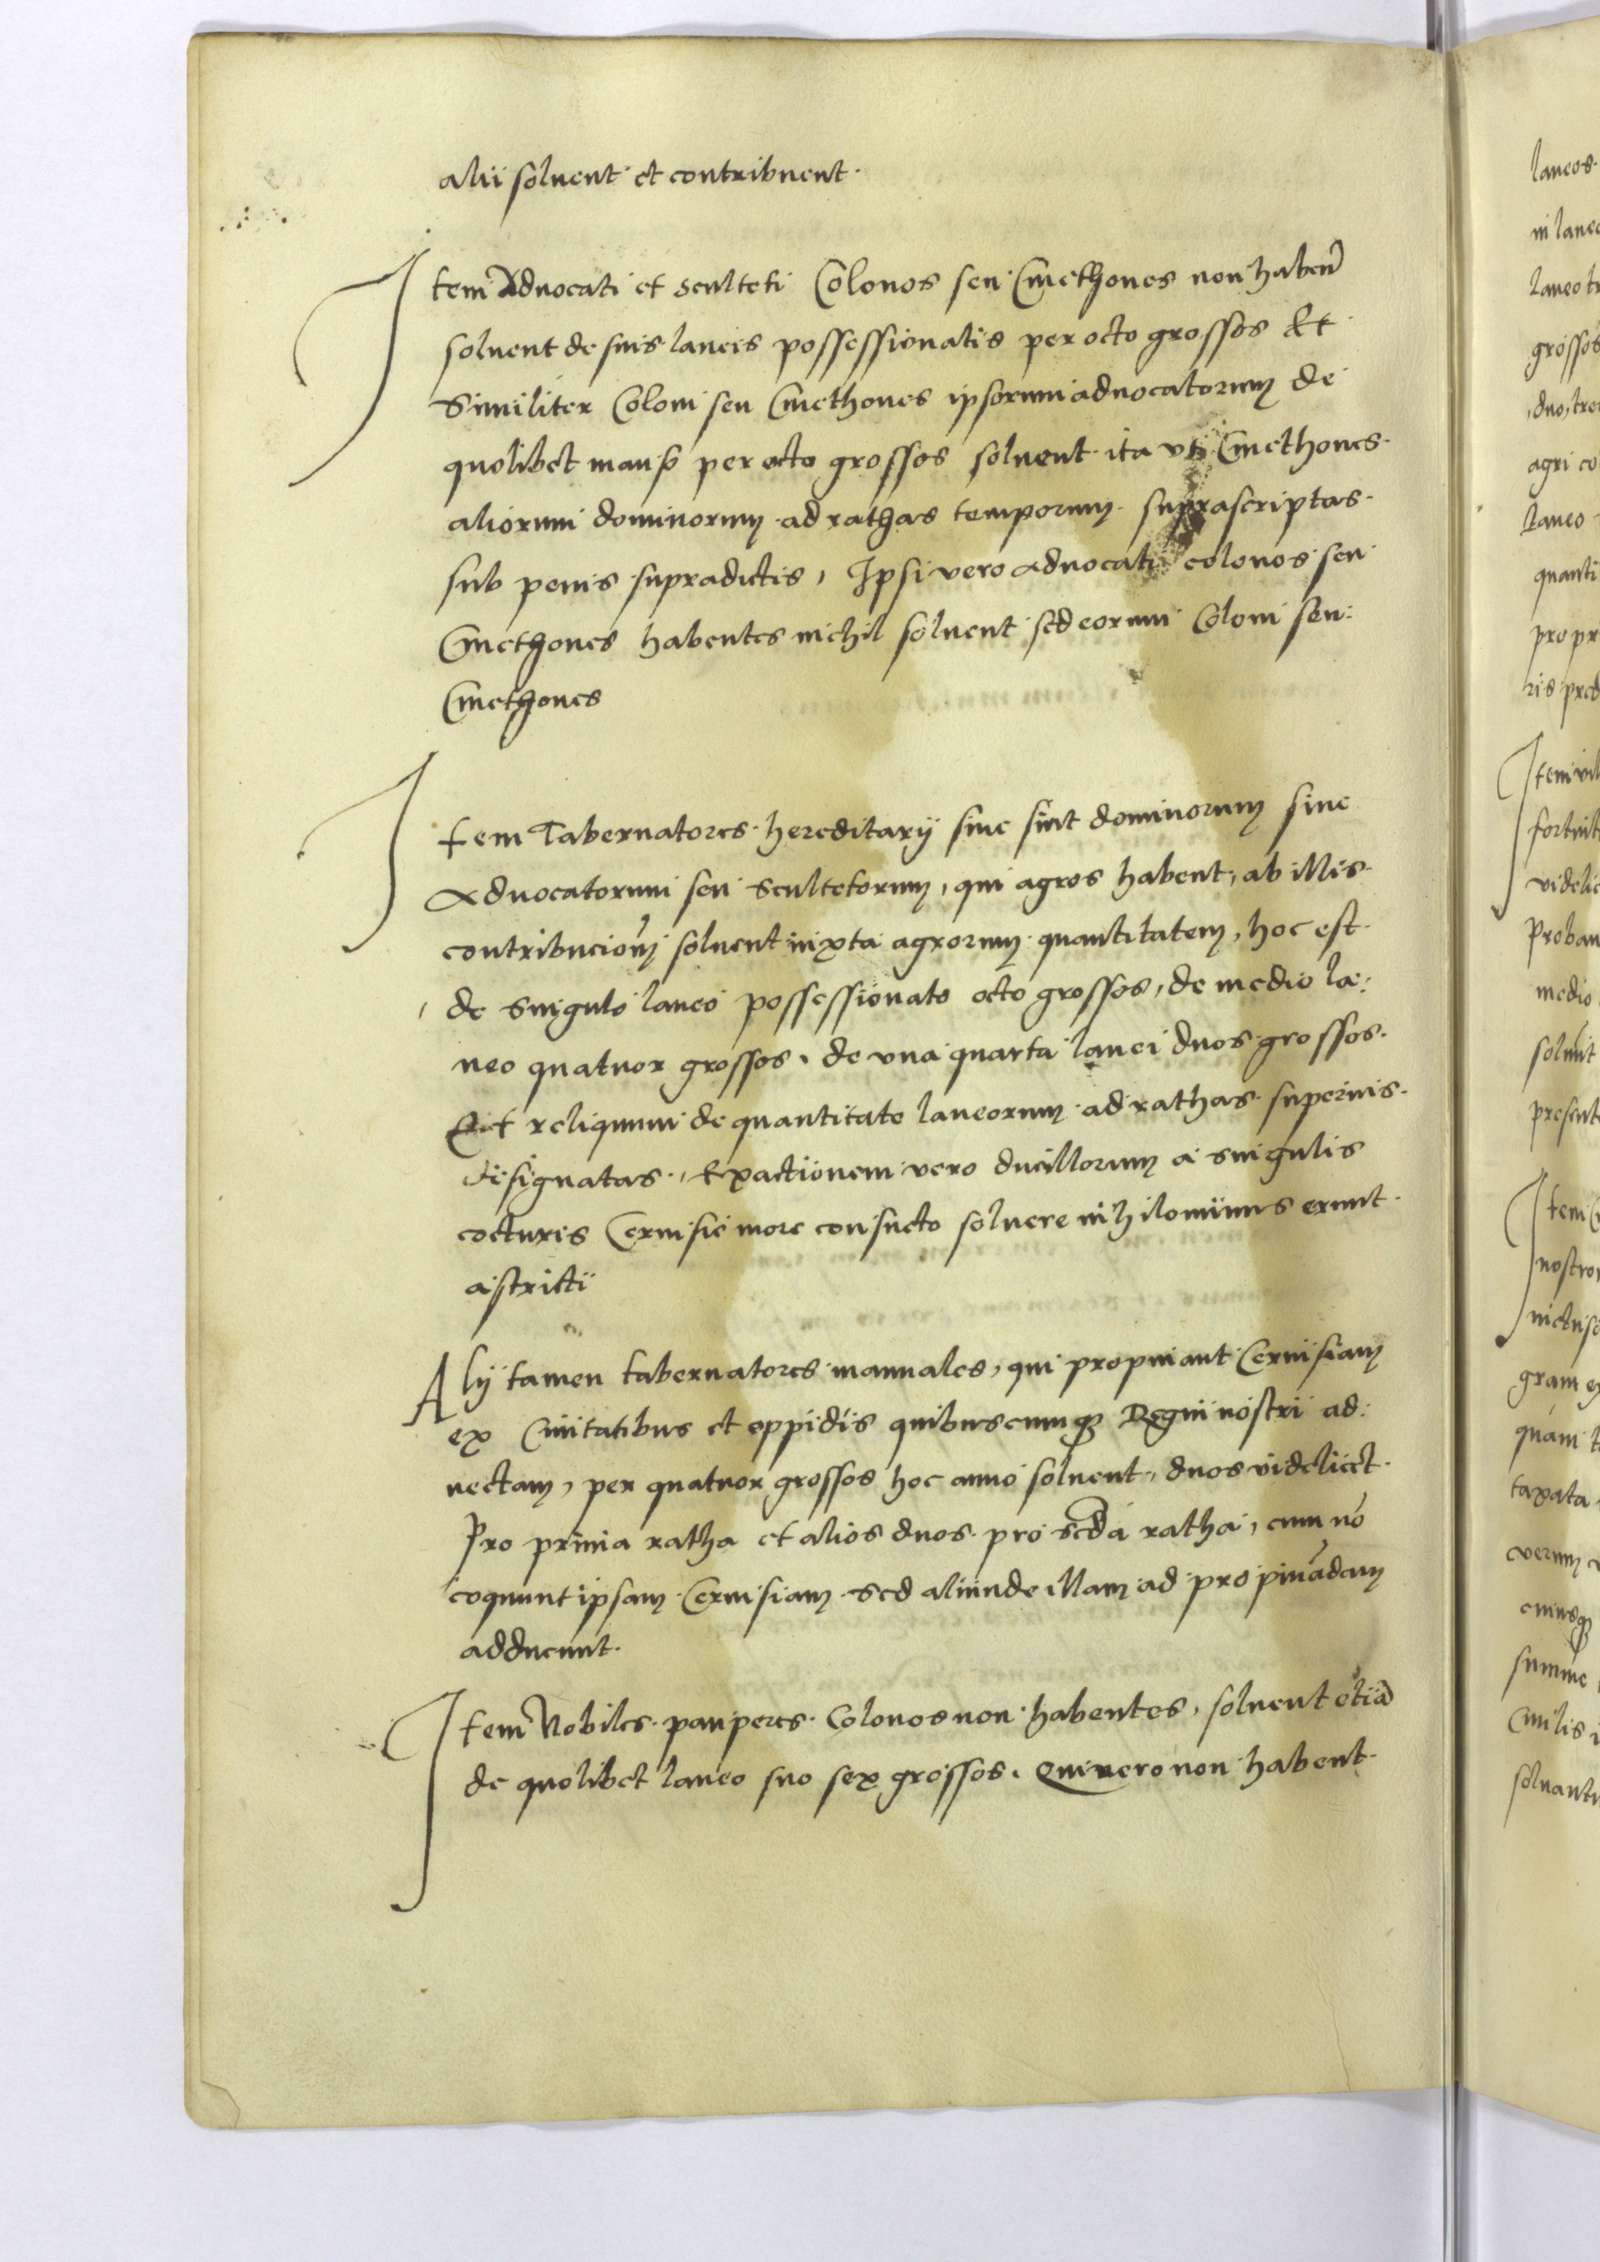 alii soluent et contribuent.
Item Aduocati et sculteti Colonos seu Cmethones non haben̄
soluent de suis laneis possessionatis per octo grossos Et
Similiter Coloni seu Cmethones ipsorum aduocatorum de
quolibet manso per octo grossos soluent ita vti Cmethones
aliorum dominorum ad rathas temporum suprascriptas
sub penis supradictis, Ipsi vero aduocati colonos seu
Cmethones habentes nichil soluent sed eorum Coloni seu:
Cmethones
Item Tabernatores hereditarij siue sint dominorum siue
Aduocatorum seu Scultetorum, qui agros habent, ab illis
contribucionē soluent iuxta agrorum quantitatem, hoc est
de Singulo laneo possessionato octo grossos, de medio la:
neo quatuor grossos, de vna quarta lanei duos grossos.
Et reliquum de quantitate laneorum ad rathas superius
designatas, Exactionem vero ducillorum a singulis
cocturis Ceruisie more consueto soluere nihilominus erunt
astricti
Alij tamen tabernatores manuales, qui propinant Ceruisiam
ex Ciuitatibus et oppidis quibuscumq3 Regni nostri ad:
uectam, per quatuor grossos hoc anno soluent, duos videlicet
Pro prima ratha et alios duos pro scd̄a ratha, cum nō
coquunt ipsam Ceruisiam sed aliunde illam ad propinādam
adducunt.
Item Nobiles pauperes Colonos non habentes, soluent etiā
de quolibet laneo suo sex grossos. Qui vero non habent
laneos
in laneo
laneo
grossos
duo, tre
agri co
Laneo
quanti
pro pr
ris pred
Item vil
fortuit
videlic
Proban
medio
soluit
present
Item
nostro
inclus
gram
quam
taxata
verum
cuiusq3
summe
Ciuilis
soluant